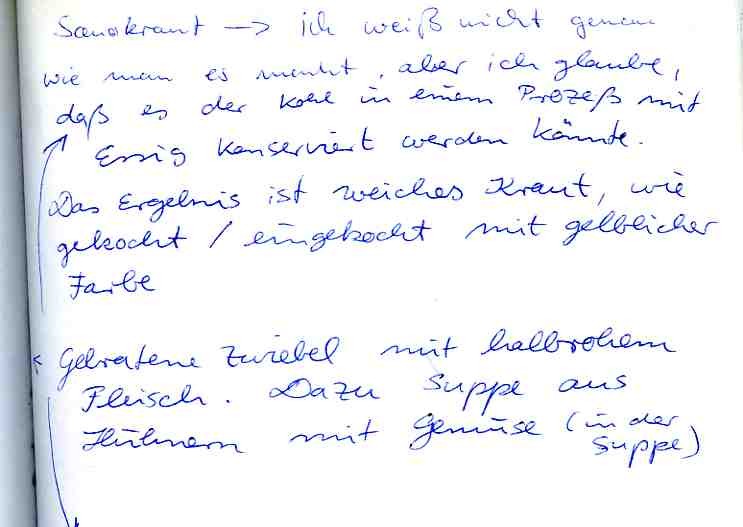 Sauokraut → ich weiß nicht genau
wie man es macht, aber ich glaube,
daß es der Kohl in einem Prozeß mit
Essig konserviert werden könnte.
Das Ergebnis ist weiches Kraut, wie
gekocht / eingekocht mit gelblicher
Farbe
Gebratene Zwiebel mit halbrohem
Fleisch. Dazu Suppe aus
Hühnern mit Gemüse (in der
Suppe)